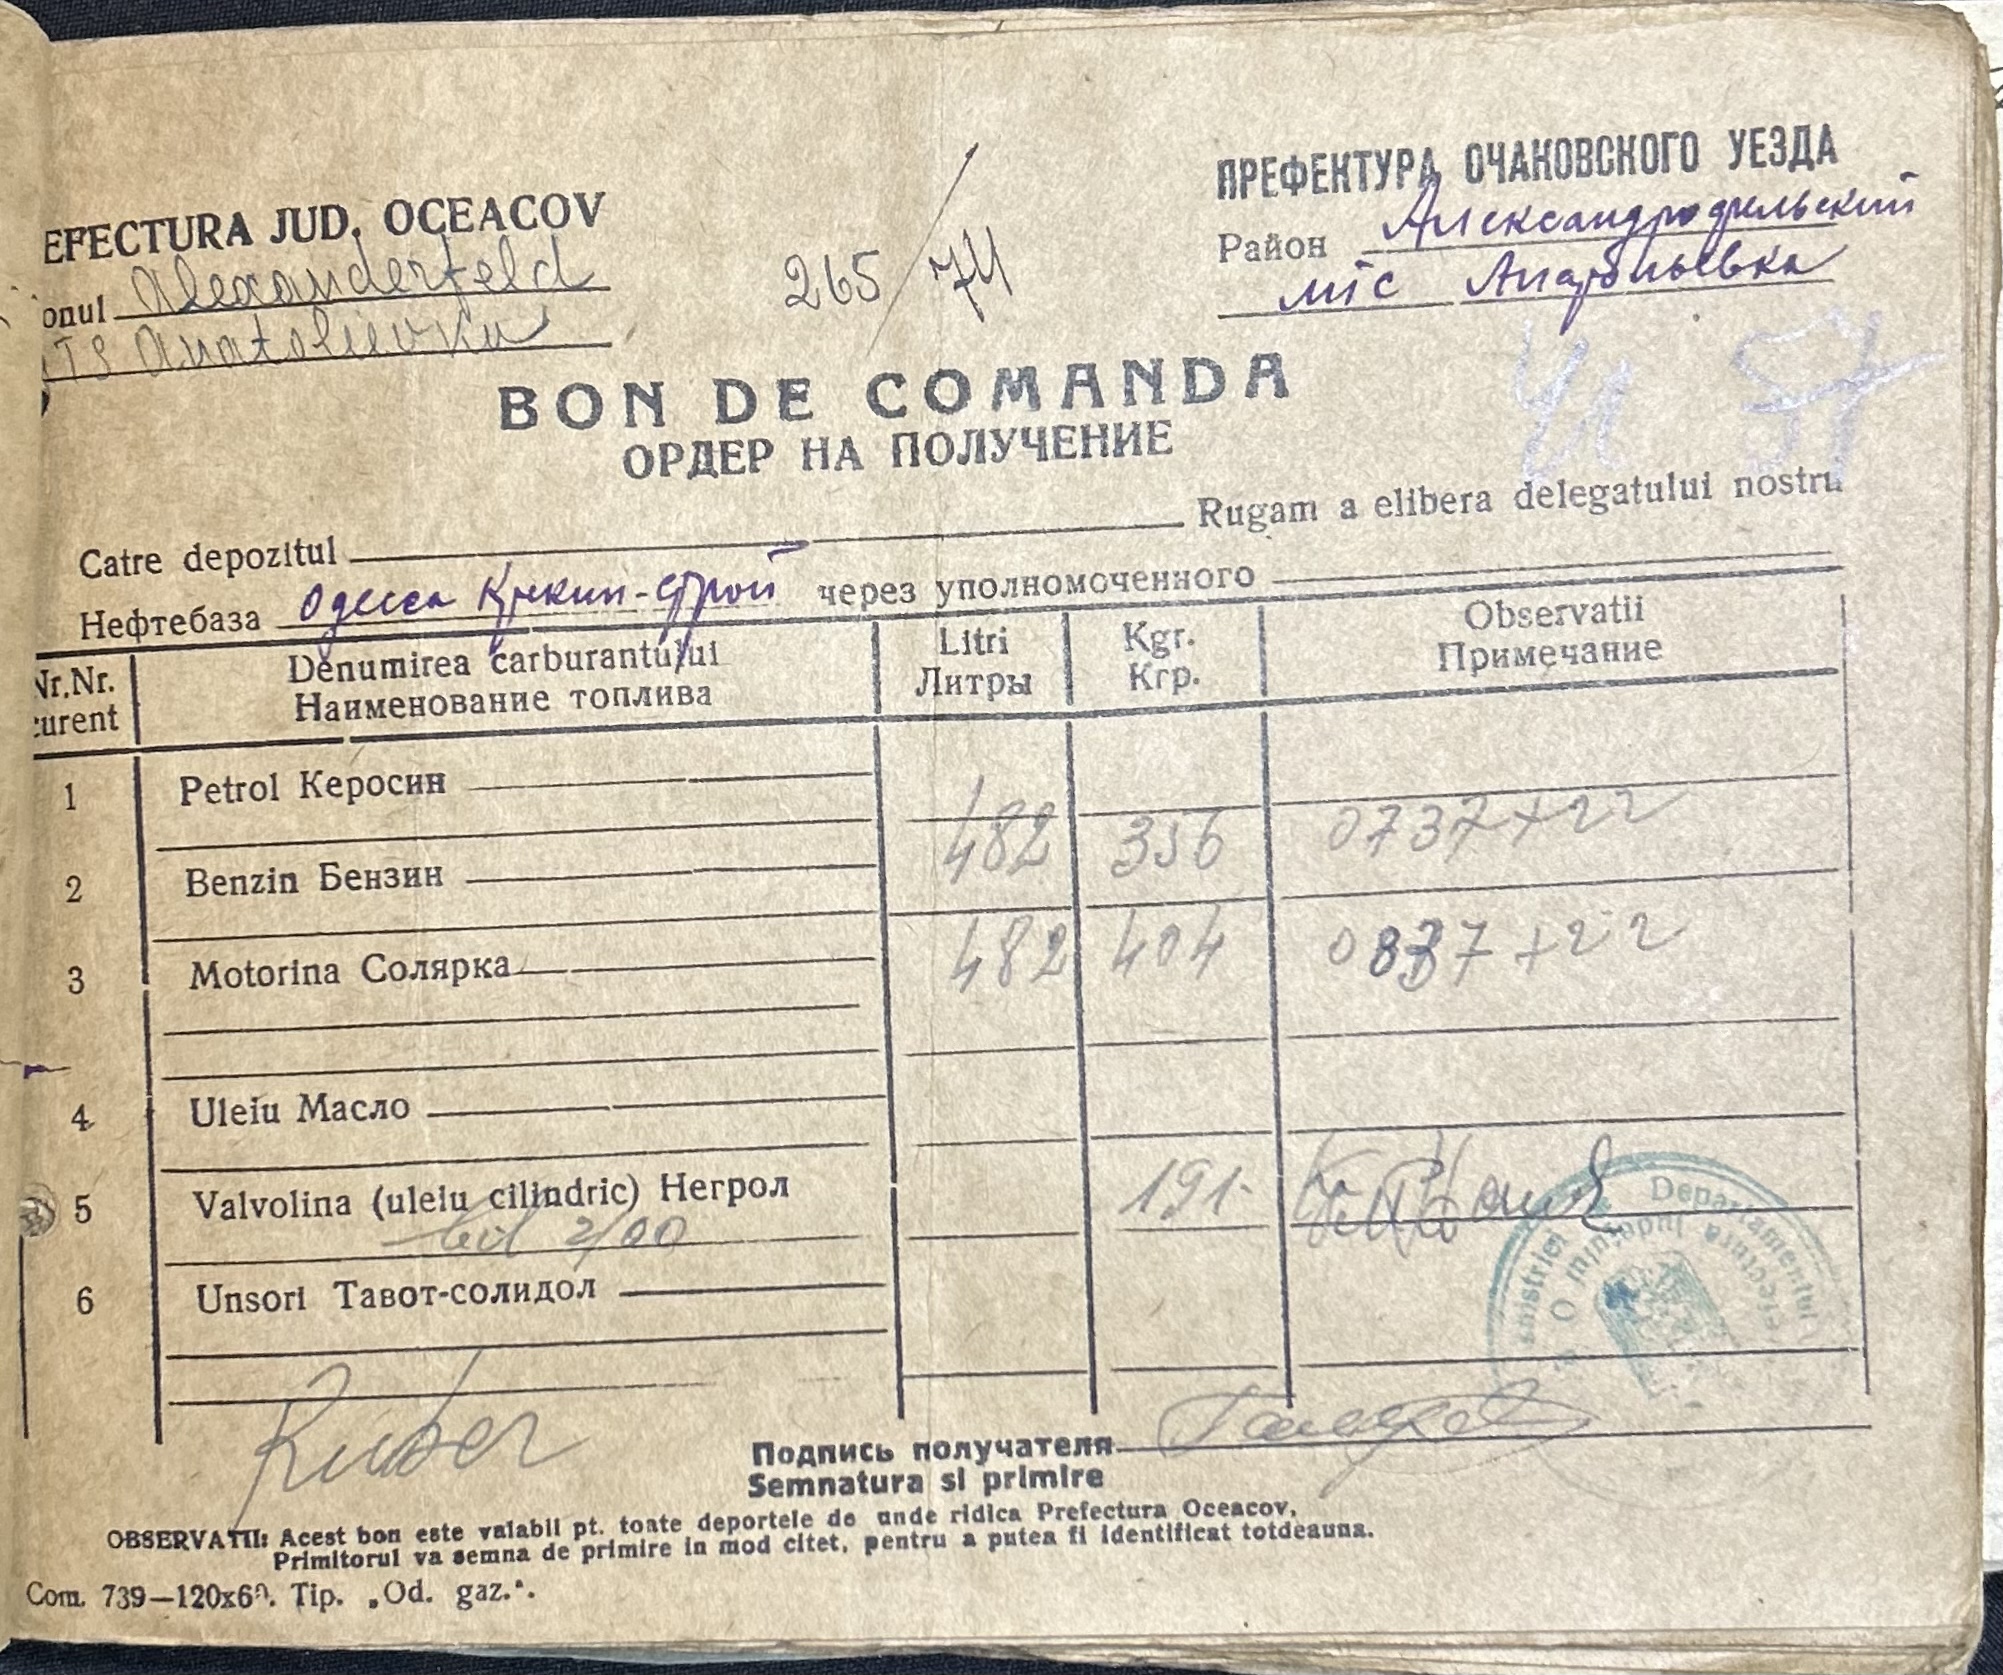 EFECTURA JUD. OCEACOV
onul Alexanderfeld
TS Anatolievka
265/74
ПРЕФЕКТУРА ОЧАКОВСКОГО УЕЗДА
Район Александрфельский
мтс Анатольевка
41 57
BON DE COMANDA
ОРДЕР НА ПОЛУЧЕНИЕ
Catre depozitul Rugam a elibera delegatului nostru
Нефтебаза Одесса Крекин-строй через уполномоченного
Nr.Nr. curent Denumirea carburantului Наименование топлива Litri Литры Kgr. Кгр. Observatii Примечание
1 Petrol Керосин
482 356 0737+22
2 Benzin Бензин
482 404 0837+22
3 Motorina Солярка
4 Uleiu Масло
5 Valvolina (uleiu cilindric) Негрол 191-
2/00
6 Unsori Тавот-солидол
Departamentul
Подпись получателя
Semnatura si primire
OBSERVATII: Acest bon este valabil pt. toate deportele de unde ridica Prefectura Oceacov,
Primitorul va semna de primire in mod citet, pentru a putea fi identificat totdeauna.
Com. 739—120x60. Tip. „Od. gaz.".